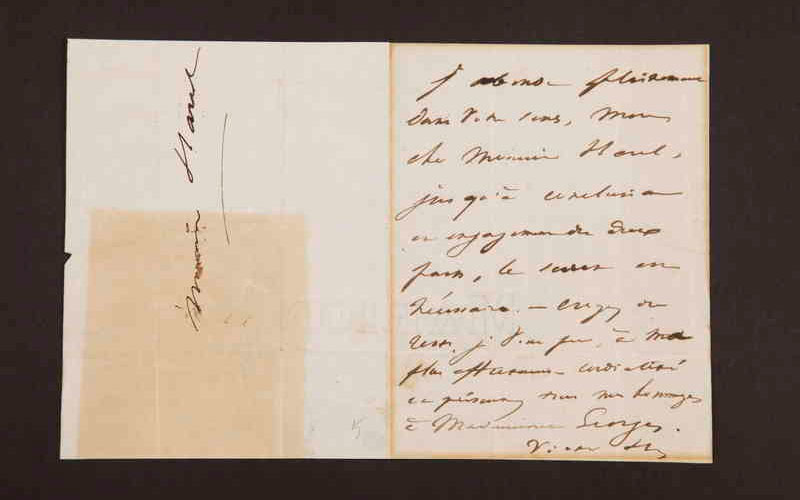 Monsieur Harel
J'abonde pleinement
dans votre sens, mon
cher Monsieur Harel,
jusqu'à conclusion
et engagement des deux
parts, le secret est
nécessaire. — Croyez du
reste, je vous prie, à ma
plus affectueuse cordialité
et présentez tous mes hommages
à Mademoiselle Georges.
Victor Hugo